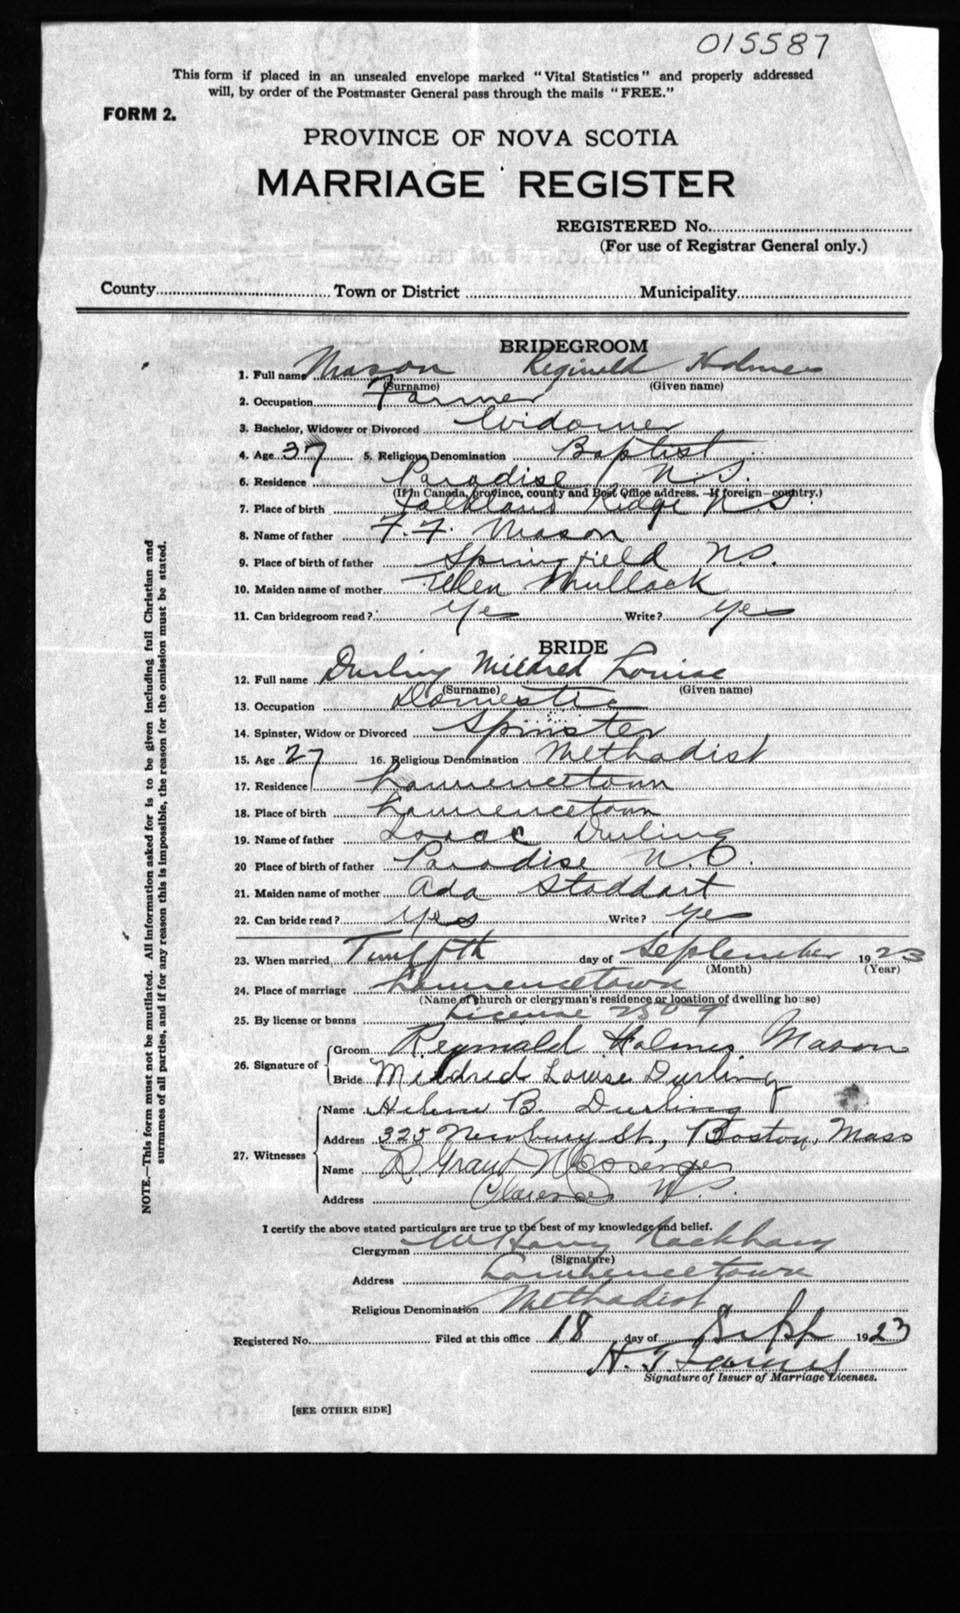 015587
This form if placed in an unsealed envelope marked "Vital Statistics" and properly addressed
will, by order of the Postmaster General pass through the mails "FREE."
FORM 2.
PROVINCE OF NOVA SCOTIA
MARRIAGE REGISTER
REGISTERED No.
(For use of Registrar General only.)
County Town or District Municipality
BRIDEGROOM
1. Full name Mason Reginald Holmes
(Surname) (Given name)
2. Occupation Farmer
3. Bachelor, Widower or Divorced Widower
4. Age 37 5. Religious Denomination Baptist
6. Residence Paradise N.S.
(If in Canada, province, county and Post Office address. If foreign country.)
7. Place of birth Falkland Ridge N.S
8. Name of father F. F. Mason
9. Place of birth of father Springfield N.S.
10. Maiden name of mother Ellen Mullock
11. Can bridegroom read? Yes Write? Yes
BRIDE
12. Full name Durling Mildred Louise
(Surname) (Given name)
13. Occupation Domestic
14. Spinster, Widow or Divorced Spinster
15. Age 27 16. Religious Denomination Methodist
17. Residence Lawrencetown
18. Place of birth Lawrencetown
19. Name of father Isaac Durling
20 Place of birth of father Paradise N.S.
21. Maiden name of mother Ada Stoddart
22. Can bride read? Yes Write? Yes
23. When married Twelfth day of September 1923
(Month) (Year)
24. Place of marriage Lawrencetown
(Name of church or clergyman's residence or location of dwelling house)
25. By license or banns License
26. Signature of Groom Reginald Holmes Mason
Bride Mildred Louise Durling
27. Witnesses Name B. Durling
Address 325 Newbury St., Boston, Mass
Name
Address Clarence N.S.
I certify the above stated particulars are true to the best of my knowledge and belief.
Clergyman
(Signature)
Address Lawrencetown
Religious Denomination Methodist
Registered No. Filed at this office 18 day of Sept 1923
H. T.
Signature of Issuer of Marriage Licenses.
[SEE OTHER SIDE]
NOTE.—This form must not be mutilated. All information asked for is to be given including full Christian and
surnames of all parties, and if for any reason this is impossible, the reason for the omission must be stated.